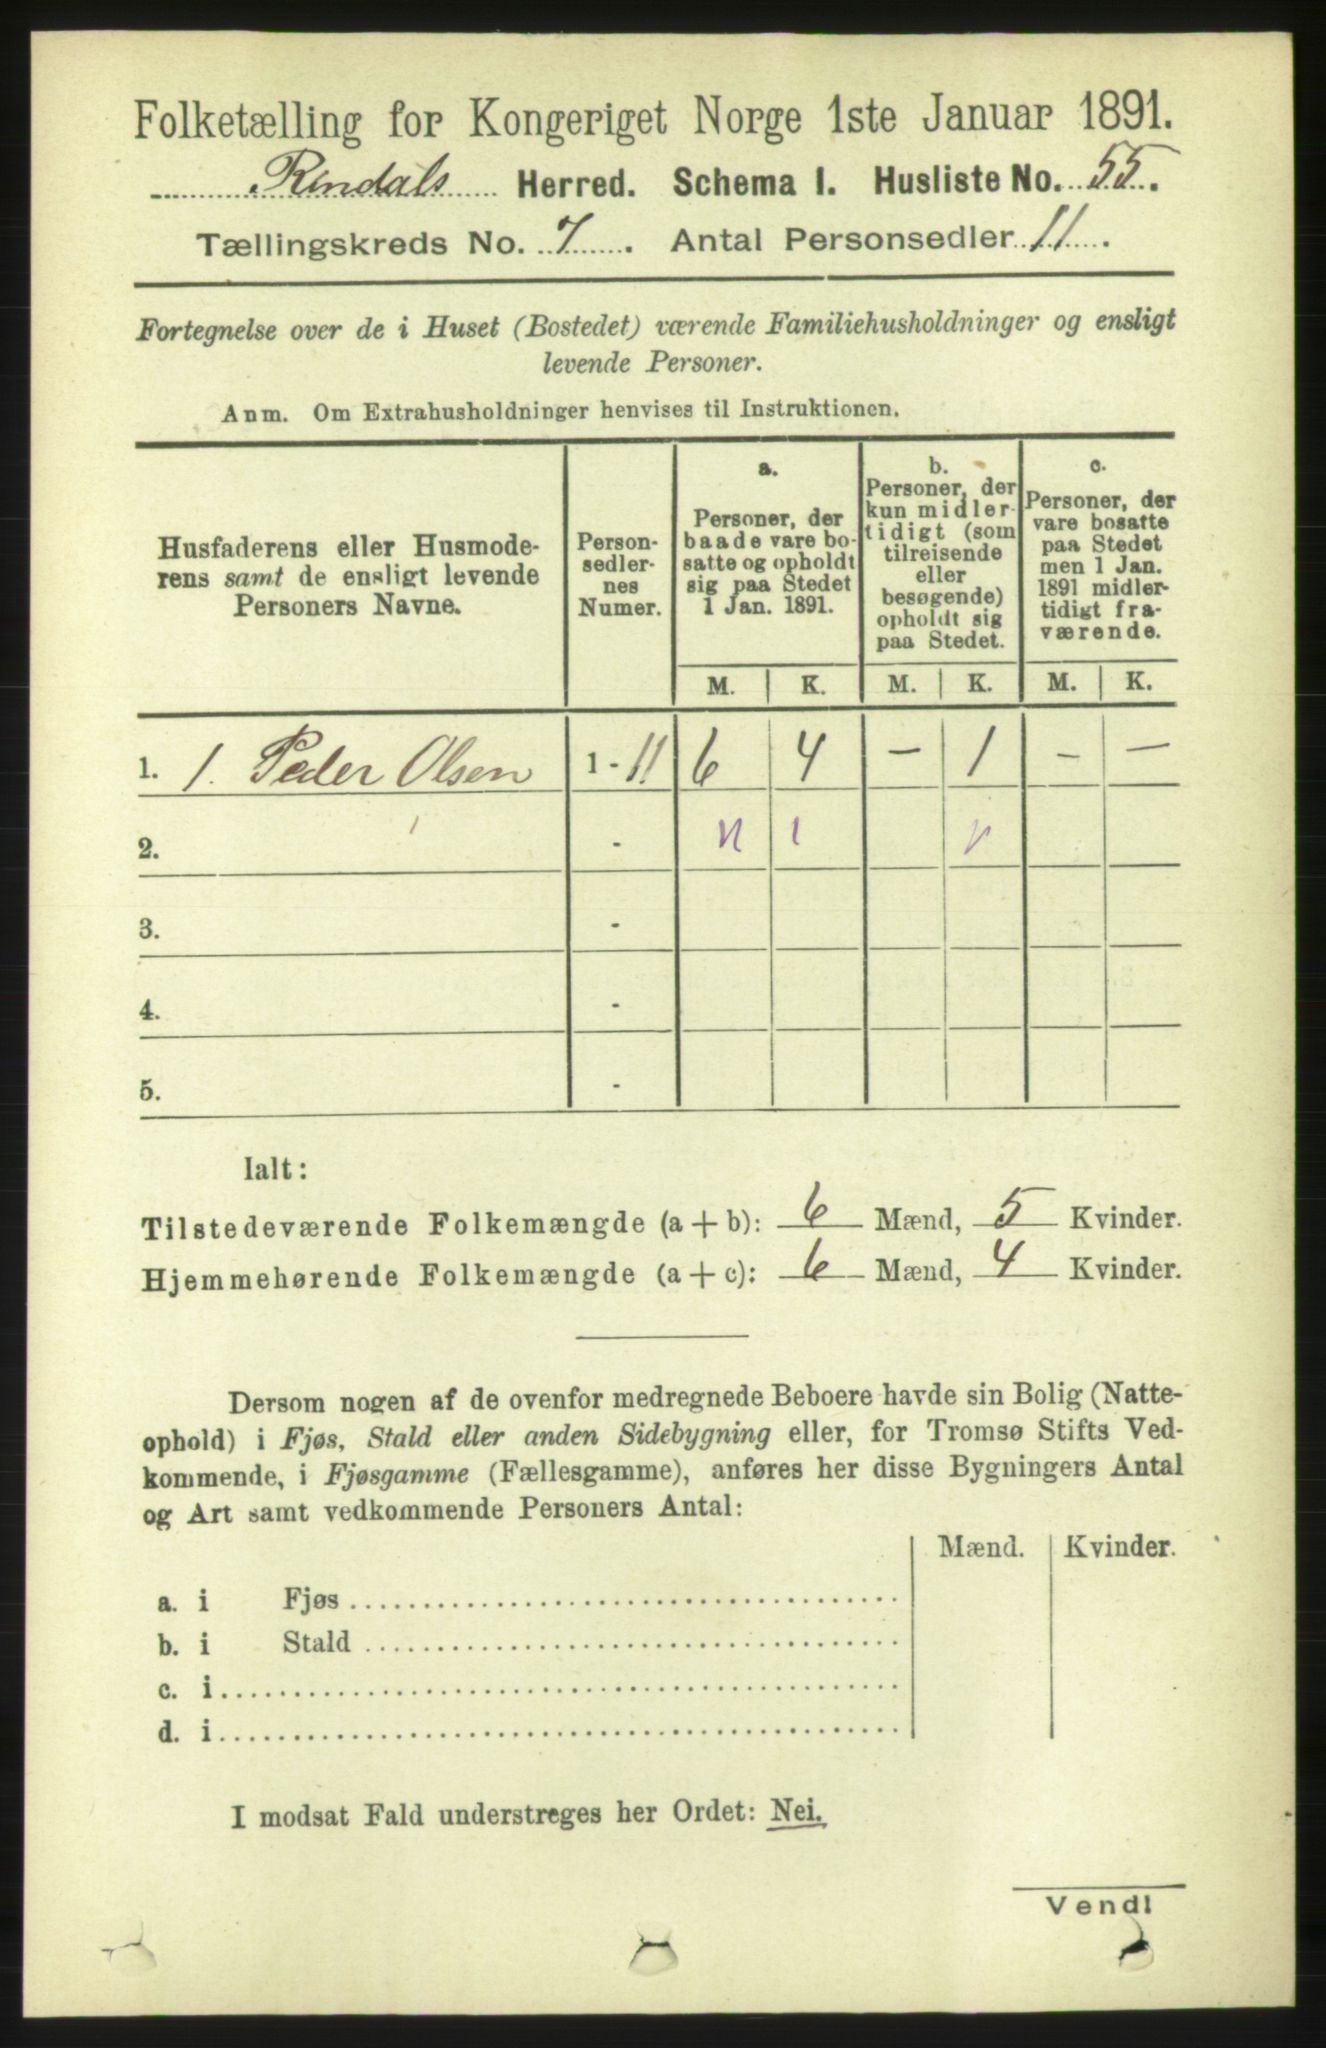 Folketælling for Kongeriget Norge 1ste Januar 1891.
Rindals Herred. Schema I. Husliste No. 55.
Tællingskreds No. 7. Antal Personsedler 11.
Fortegnelse over de i Huset (Bostedet) værende Familiehusholdninger og ensligt
levende Personer.
Anm. Om Extrahusholdninger henvises til Instruktionen.
Husfaderens eller Husmode-
rens samt de ensligt levende
Personers Navne.
Person-
sedler-
nes
Numer.
a.
Personer, der
baade vare bo-
satte og opholdt
sig paa Stedet
1 Jan. 1891.
b.
Personer, der
kun midler-
tidigt (som
tilreisende
eller
besøgende)
opholdt sig
paa Stedet.
c.
Personer, der
vare bosatte
paa Stedet
men 1 Jan.
1891 midler-
tidigt fra-
værende.
M. K. M. K. M. K.
1. 1. Peder Olsen 1 - 11 6 4 — 1 — —
2. - 1
3. -
4. -
5. -
Ialt:
Tilstedeværende Folkemængde (a + b): 6 Mænd, 5 Kvinder.
Hjemmehørende Folkemængde (a + c): 6 Mænd, 4 Kvinder.
Dersom nogen af de ovenfor medregnede Beboere havde sin Bolig (Natte-
ophold) i Fjøs, Stald eller anden Sidebygning eller, for Tromsø Stifts Ved-
kommende, i Fjøsgamme (Fællesgamme), anføres her disse Bygningers Antal
og Art samt vedkommende Personers Antal:
Mænd. Kvinder.
a. i Fjøs
b. i Stald
c. i
d. i
I modsat Fald understreges her Ordet: Nei.
Vend!